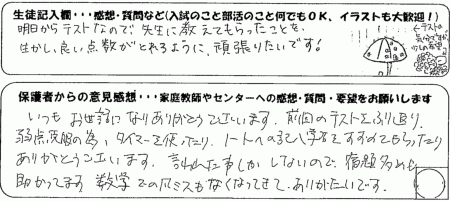 生徒記入欄・・・感想・質問など(入試のこと部活のこと何でもOK、イラストも大歓迎!)
明日からテストなので先生に教えてもらったことを、
生かし良い点数がとれるように、頑張りたいです!
保護者からの意見感想・・・家庭教師やセンターへの感想・質問・要望をお願いします
いつもお世話になりありがとうございます。前回のテストをふり返り、
弱点克服の為、タイマーを使ったり、ノートへの記入等をすすめてもらったり
ありがとうございます。言われた事しかしないので、宿題多めも
助かってます。数学での凡ミスもなくなってきて、ありがたいです。